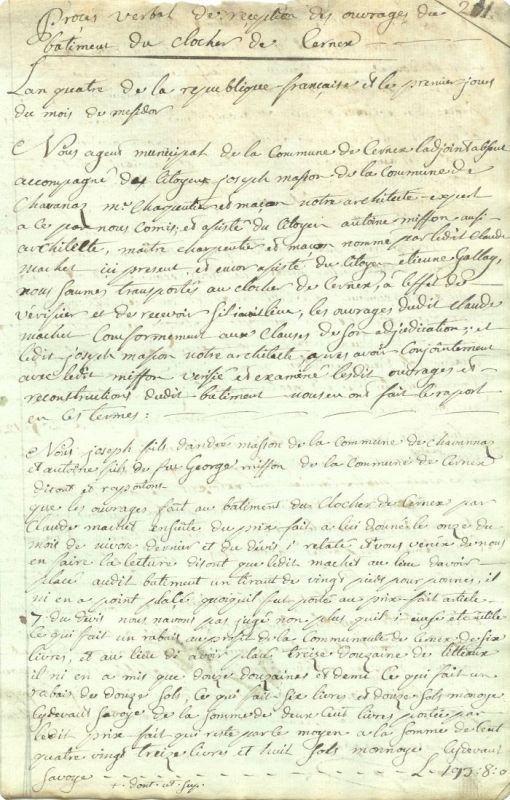 Proces verbal de reception des ouvrages du 201.
batiment du clocher de Cernex
Lan quatre de la republique francaise et le premier jour
du mois de mesidor
Nous agent municipal de la Commune de Cernex ladjoint absent
accompagné du Citoyen joseph masson de la Commune de
Chavanaz me Charpentier et maçon notre architecte expert
a ce par nous Comis, et asisté du Citoyen antoine misson ausi
architecte, maitre charpentie et maçon nommé par ledit Claude
machet ici present, et encor asisté du Citoyen etienne Gallay,
nous sommes transportés au clocher de Cernex, a leffet de
verifier et de recevoir sil iaut lieu, les ouvrages dudit Claude
machet Conformement aux Clauses de son adjudication; et
ledit joseph masson notre architecte, apres avoir Conjointement
avec ledit misson verifié et examiné lesdit ouvrages et
reconstructions dudit batiment nous en ont fait le raport
en ces termes:
Nous joseph fils dandré masson de la Commune de Chavannaz
et antoine fils de feu George misson de la Commune de Cernex
disont et raportont
que les ouvrages fait au batiment du Clocher de Cernex par
Claude machet ensuite du prix fait a lui donné le onze du
mois de nivos dernier et du devis i relaté et vous venir de nous
en faire la lecture disont que ledit machet au lieu davoir
placé audit batiment un tirant de vingt pieds pour pannes, il
ni en a point placé quoiquil fut porté au prix-fait article
7 du devis nous navons pas jugé non plus quil i eusse eté utile
Ce qui fait un rabais au profit de la Communauté de Cernex de six
livres, et au lieu di avoir placé treize douzaine de litteaux
il ni en a mis que douze douzaines et demi Ce qui fait un
rabais de douze sols, Ce qui fait six livres et douze sols monoye
Cydevant Savoye de la somme de deux Cent livres portée par
ledit prix fait qui reste par le moyen a la somme de Cent
quatre vingt treize livres et huit sols monnoye Cydevant
Savoye L 193:8:0
+ dont ut sup.